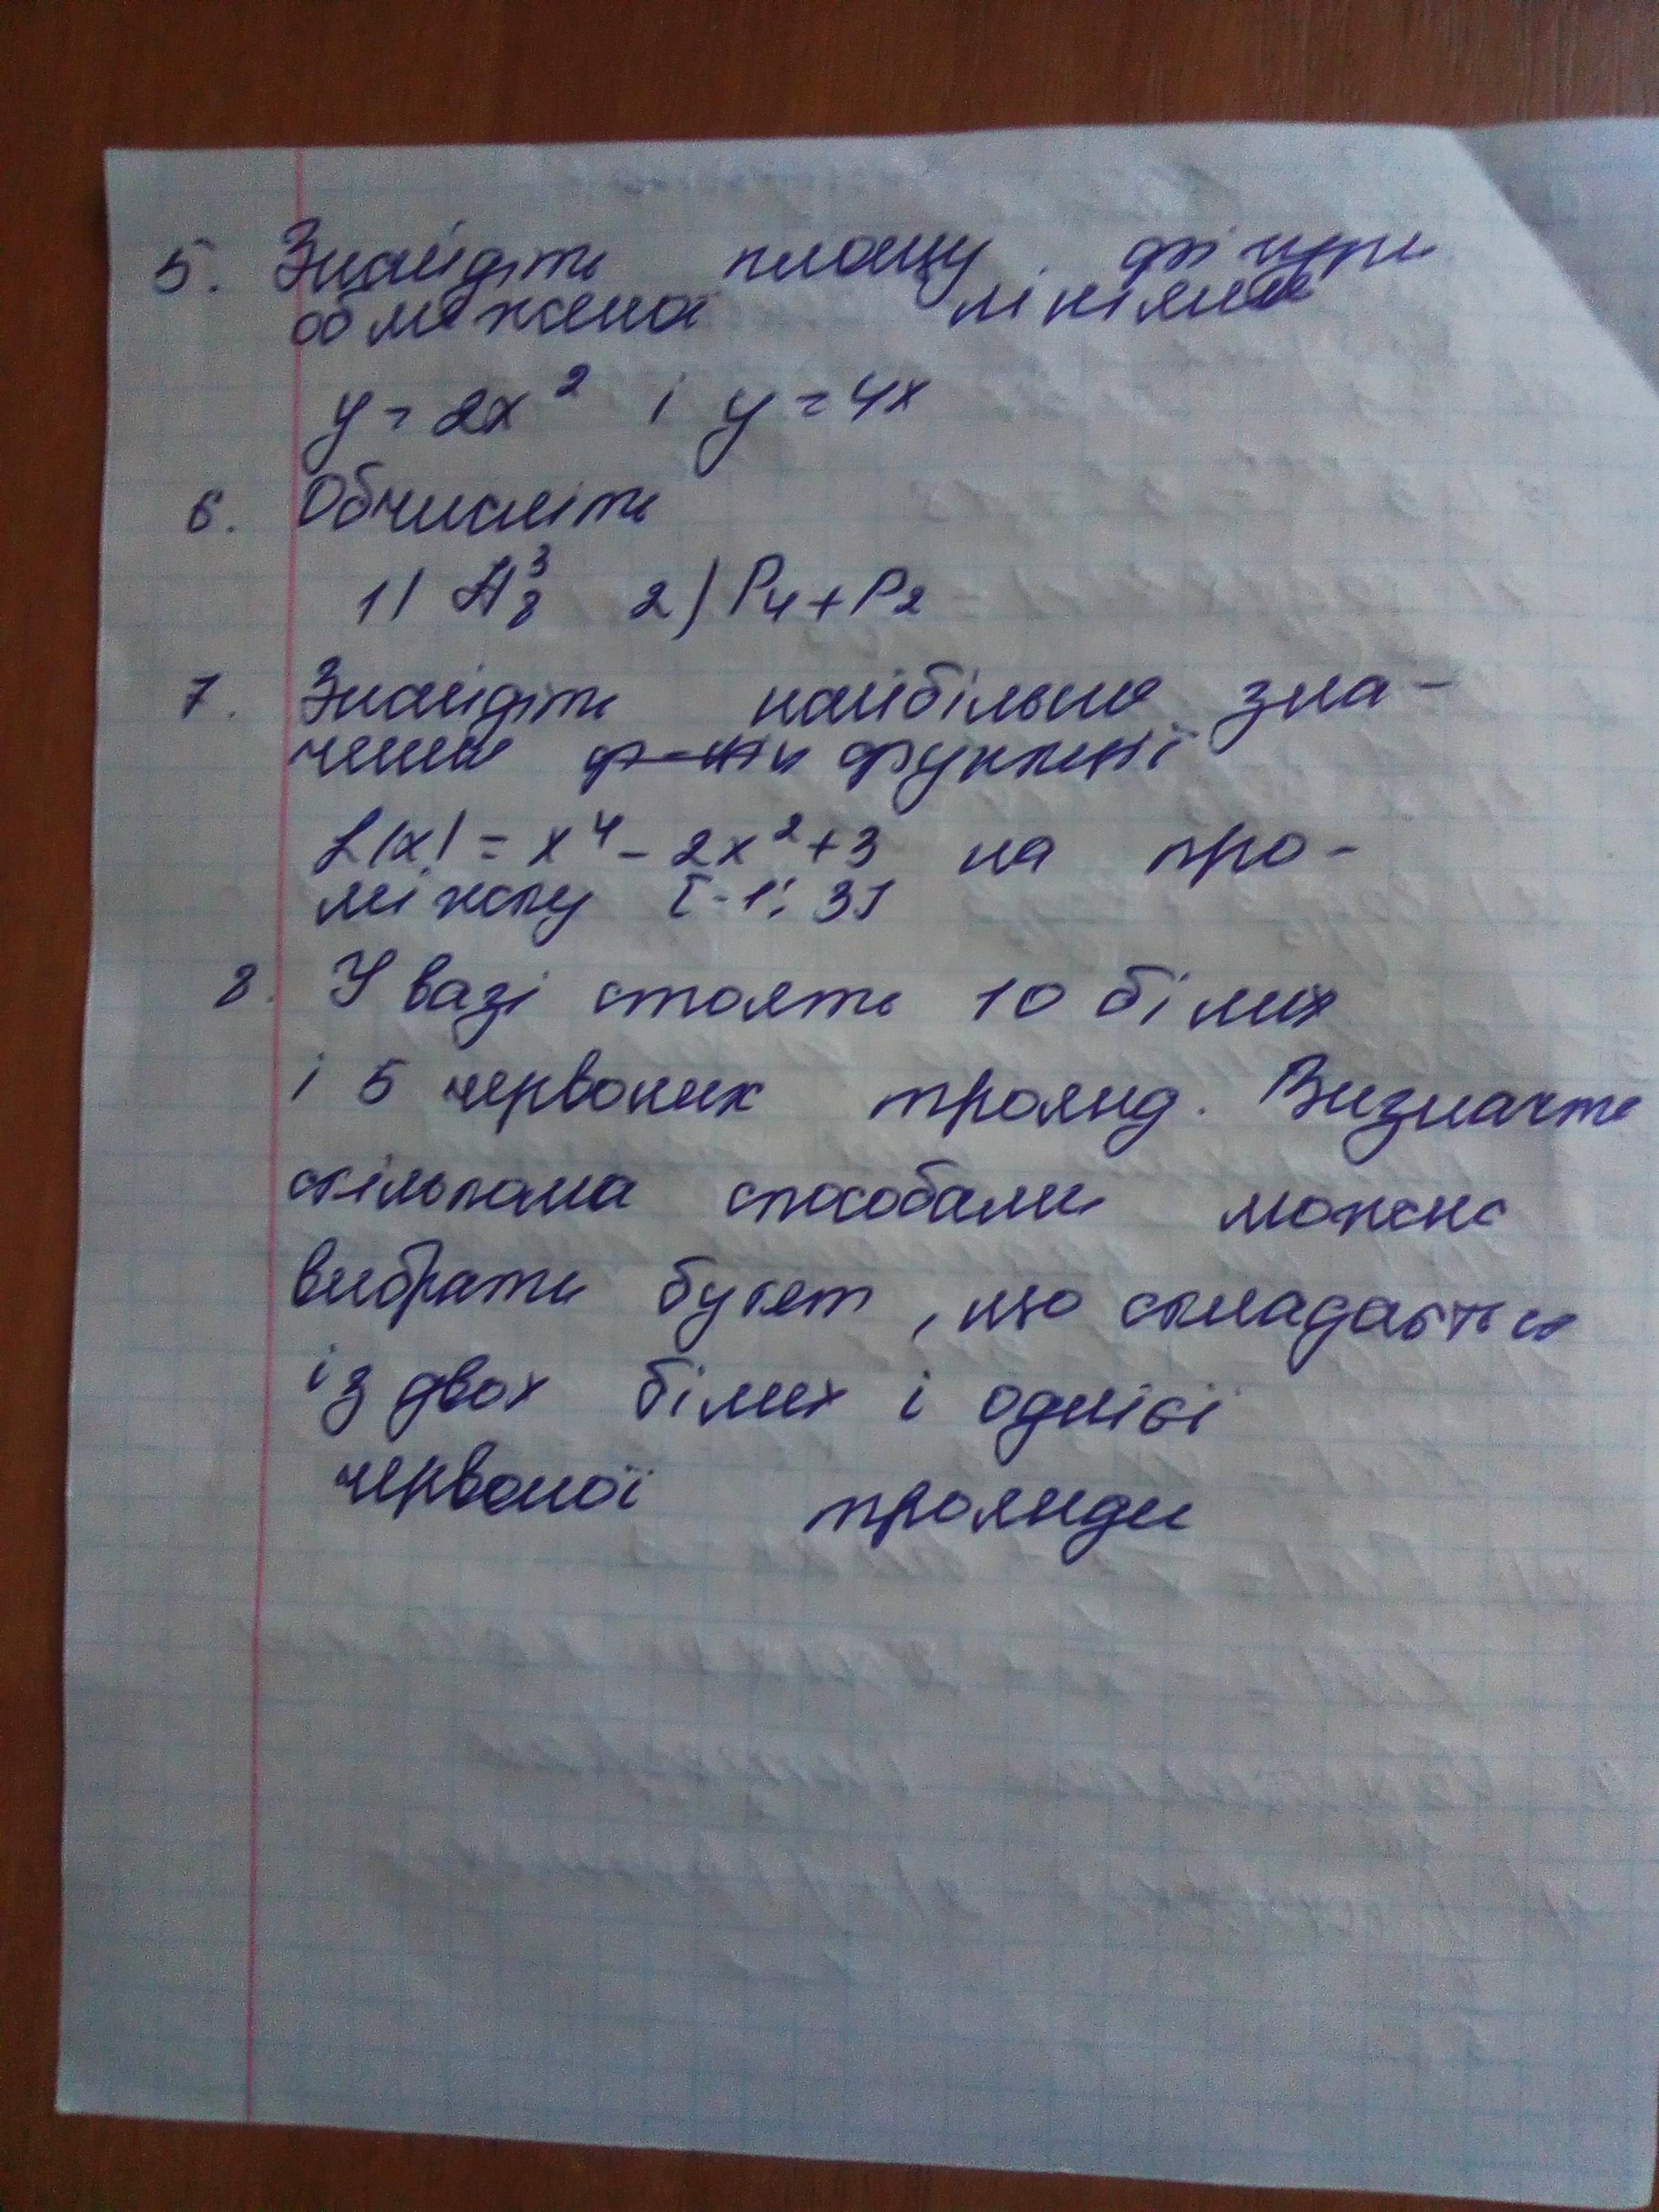 5. Знайдіть площу фігури
обмежена лініями
y = 2x² і y = 4x
6. Обчисліть
1) A³₈ 2) P₄ + P₂
7. Знайдіть найбільше зна-
чення функції
f(x) = x⁴ - 2x² + 3 на про-
міжку [-1; 3]
8. У вазі стоять 10 білих
і 5 червоних троянд. Визначте
скількома способами можна
вибрати букет, що складається
із двох білих і однієї
червоної троянди